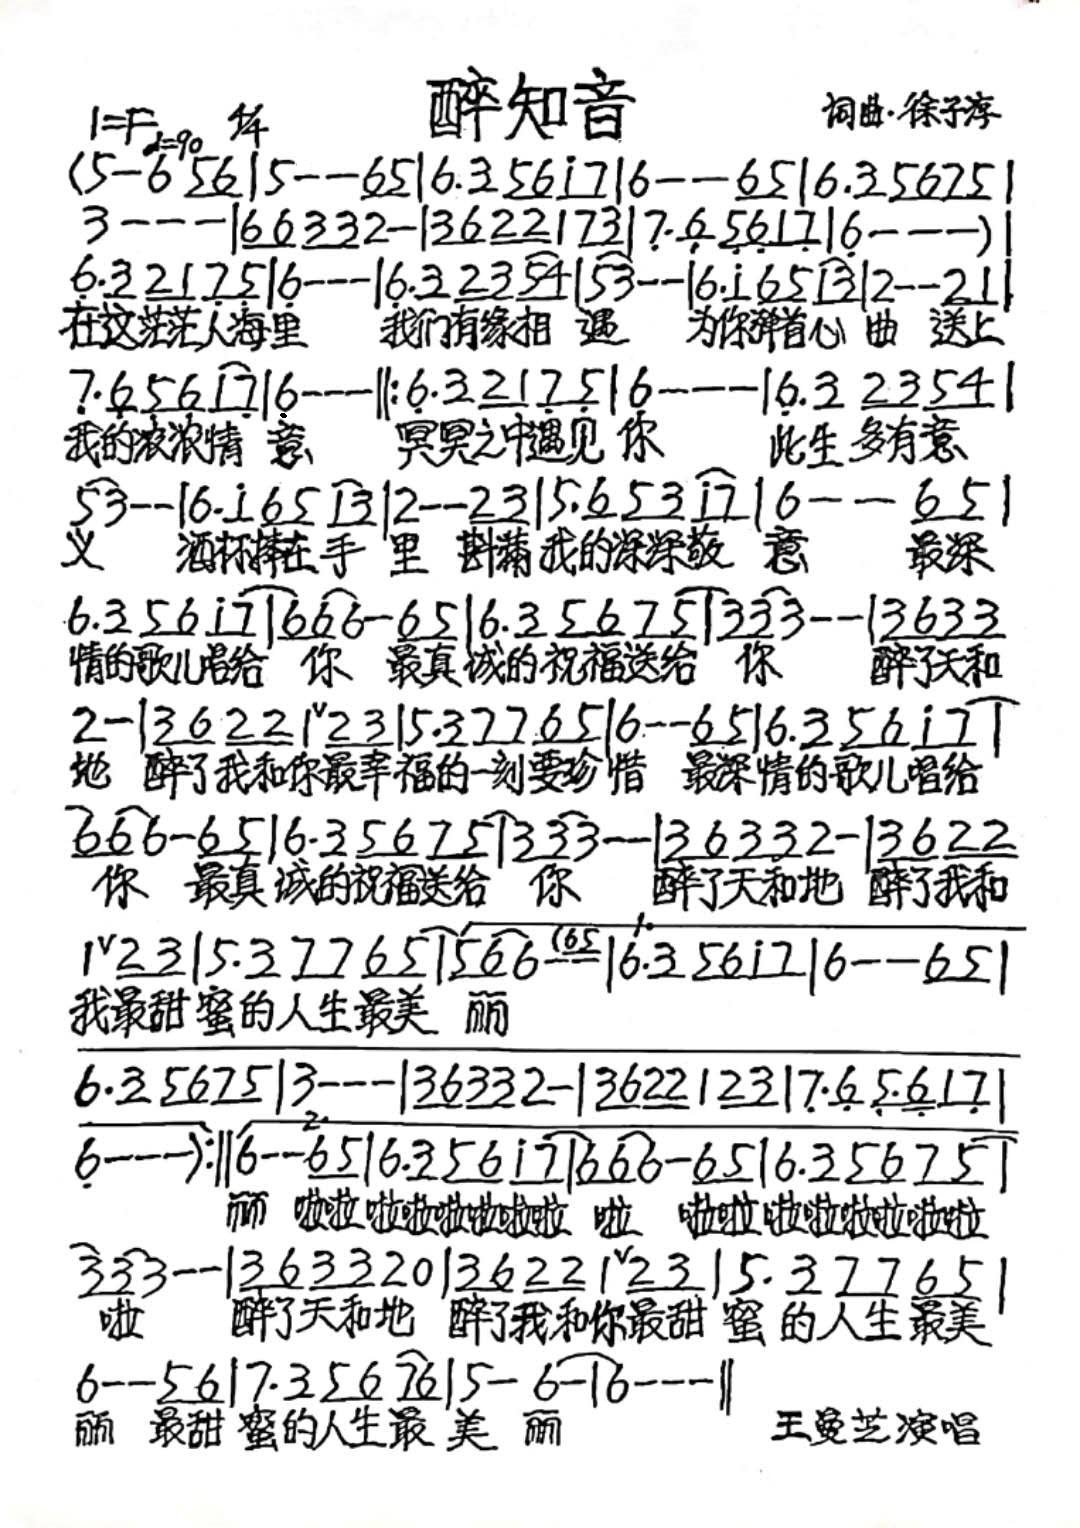 醉知音
1=F ♩=90 4/4 词曲·徐子淳
(5-6 56|5---65|6.3 561̇7|6---65|6.35675|
3----|663332-|36221 73|7.65617|6----)|
6.3 2175|6---|6.3 2354|53--|6.1̇6513|2--21|
在这茫茫人海里 我们有缘相遇 为你弹首心曲 送上
7.656 17|6---‖:6.3 2175|6----|6.3 2354|
我的浓浓情意 冥冥之中遇见你 此生多有意
53--|6.1̇65 13|2--23|5.653 1̇7|6---65|
义 酒杯捧在手里 斟满我的深深敬意 最深
6.35617|666-65|6.35675|333--|3633
情的歌儿唱给你 最真诚的祝福送给你 醉了天和
2-|36221ᵛ23|5.37765|6--65|6.35617|
地 醉了我和你最幸福的一刻要珍惜 最深情的歌儿唱给
666-65|6.35675|333--|363332-|3622
你 最真诚的祝福送给你 醉了天和地 醉了我和
1ᵛ23|5.37765|566--(65|1.6.35617|6--65|
我最甜蜜的人生最美丽
6.35675|3---|363332-|3622123|7.65.617|
6----):‖2.6--65|6.35617|666-65|6.35675|
丽 啦啦啦啦啦啦啦啦 啦 啦啦啦啦啦啦啦啦
333--|3633320|36221ᵛ23|5.37765|
啦 醉了天和地 醉了我和你最甜蜜的人生最美
6--56|7.35676|5-6-|6----‖
丽 最甜蜜的人生最美丽 王曼芝演唱